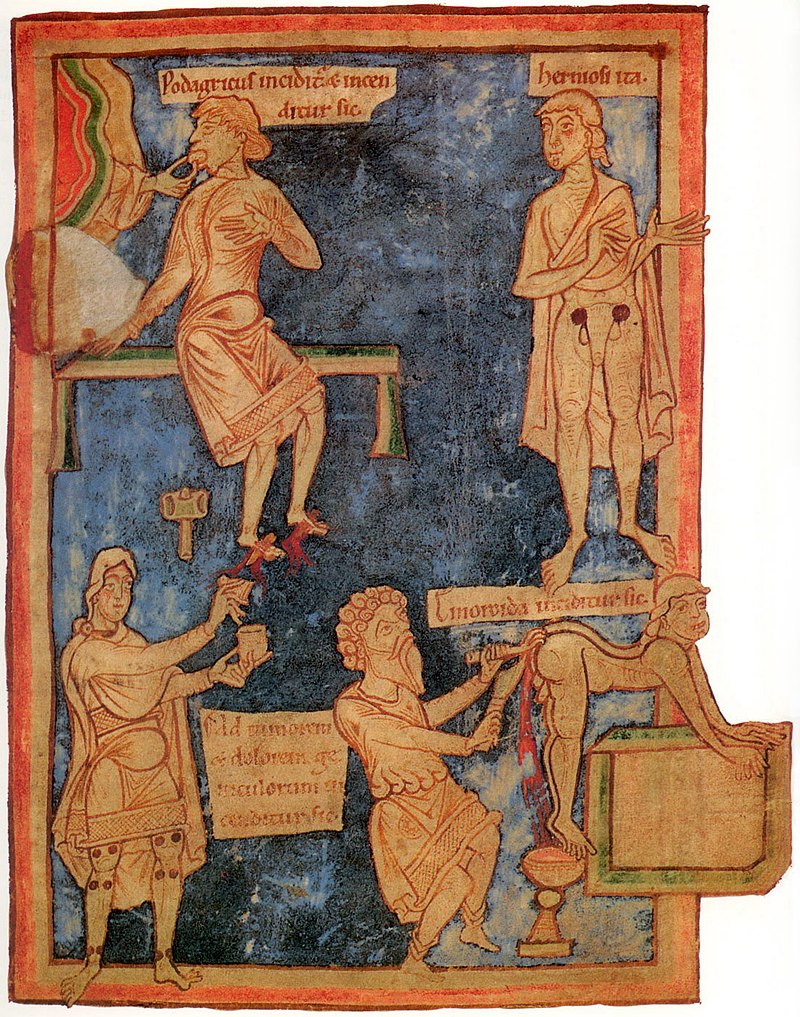 Podagricus incidit̃ & incen
ditur sic.
herniosi ita.
Emorroida inciditur sic.
Ad tumorem
& dolorem ge
niculorum in
cenditur sic